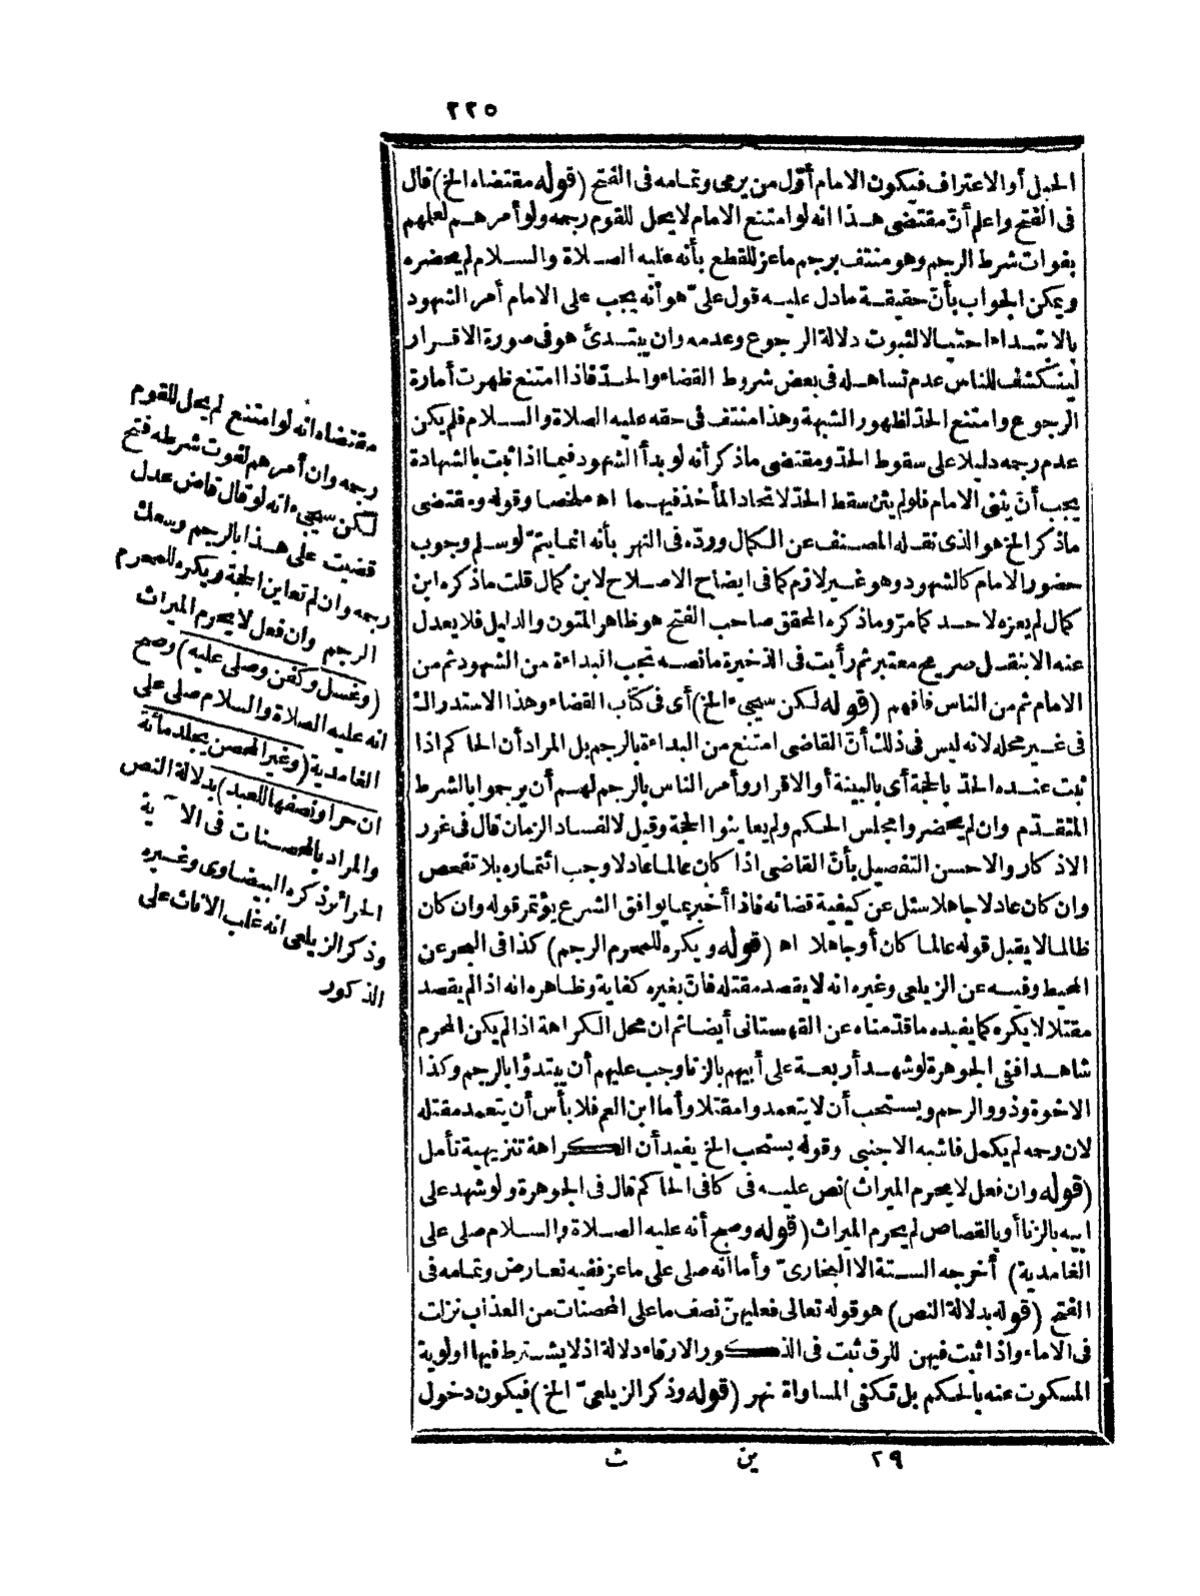 ٢٢٥
الحبل أو الاعتراف فيكون الامام أول من يرمى وتمامه فى الفتح (قوله مقتضاه الخ) قال
فى الفتح واعلم أن مقتضى هذا انه لو امتنع الامام لا يحل للقوم رجمه ولو أمرهم لعلمهم
بفوات شرط الرجم وهو منتف برجم ماعز للقطع بأنه عليه الصلاة والسلام لم يحضره
ويمكن الجواب بأن حقيقة ما دل عليه قول علىّ هو أنه يجب على الامام أمر الشهود
بالابتداء احتيالا لثبوت دلالة الرجوع وعدمه وان يبتدئ هو فى صورة الاقرار
لينكشف للناس عدم تساهله فى بعض شروط القضاء والحدّ فاذا امتنع ظهرت أمارة
الرجوع وامتنع الحد لظهور الشبهة وهذا منتف فى حقه عليه الصلاة والسلام فلم يكن
عدم رجمه دليلا على سقوط الحدّ ومقتضى ما ذكر أنه لو بدأ الشهود فيما اذا ثبت بالشهادة
يجب أن يثنى الامام فلو لم يثن سقط الحدّ لاتحاد المأخذ فيهما اه ملخصا وقوله ومقتضى
ما ذكر الخ هو الذى نقله المصنف عن الكمال وردّه فى النهر بأنه انما يتمّ لو سلم وجوب
حضور الامام كالشهود وهو غير لازم كما فى ايضاح الاصلاح لابن كمال قلت ما ذكره ابن
كمال لم يعزه لاحد كما مرّ وما ذكره المحقق صاحب الفتح هو ظاهر المتون والدليل فلا يعدل
عنه الا بنقل صريح معتبر ثم رأيت فى الذخيرة ما نصه تجب البداءة من الشهود ثم من
الامام ثم من الناس فافهم (قوله لكن سيجىء الخ) أى فى كتاب القضاء وهذا الاستدراك
فى غير محله لانه ليس فى ذلك أنّ القاضى امتنع من البداءة بالرجم بل المراد أن الحاكم اذا
ثبت عنده الحدّ بالحجة أى بالبينة أو الاقرار وأمر الناس بالرجم لهم أن يرجموا بالشرط
المتقدّم وان لم يحضروا مجلس الحكم ولم يعاينوا الحجة وقيل لا لفساد الزمان قال فى غرر
الاذكار والاحسن التفصيل بأنّ القاضى اذا كان عالما عادلا وجب ائتماره بلا تفحص
وان كان عادلا جاهلا سئل عن كيفية قضائه فاذا أخبر بما يوافق الشرع يؤتمر قوله وان كان
ظالما لا يقبل قوله عالما كان أو جاهلا اه (قوله ويكره للمحرم الرجم) كذا فى البحر عن
المحيط وفيه عن الزيلعى وغيره انه لا يقصد مقتله فان بغيره كفاية وظاهره انه اذا لم يقصد
مقتلا لا يكره كما يفيده ما قدّمناه عن القهستانى أيضا ثم ان محل الكراهة اذا لم يكن المحرم
شاهدا ففى الجوهرة لو شهد أربعة على أبيهم بالزنا وجب عليهم أن يبتدؤا بالرجم وكذا
الاخوة وذوو الرحم ويستحب أن لا يتعمدوا مقتلا وأما ابن العم فلا بأس أن يتعمد مقتله
لان رحمه لم يكمل فاشبه الاجنبى وقوله يستحب الخ يفيد أن الكراهة تنزيهية تأمل
(قوله وان فعل لا يحرم الميراث) نص عليه فى كافى الحاكم قال فى الجوهرة ولو شهد على
ابيه بالزنا أو بالقصاص لم يحرم الميراث (قوله وصح أنه عليه الصلاة والسلام صلى على
الغامدية) أخرجه الستة الا البخارىّ وأما انه صلى على ماعز ففيه تعارض وتمامه فى
الفتح (قوله بدلالة النص) هو قوله تعالى فعليهنّ نصف ما على المحصنات من العذاب نزلت
فى الاماء واذا ثبت فيهن للرق ثبت فى الذكور الارقاء دلالة اذ لا يشترط فيها اولوية
المسكوت عنه بالحكم بل تكفى المساواة نهر (قوله وذكر الزيلعىّ الخ) فيكون دخول
٢٩ ين ث
مقتضاه انه لو امتنع لم يحل للقوم
رجمه وان أمرهم لفوت شرطه فتح
لكن سيجىء انه لو قال قاض عدل
قضيت على هذا بالرجم وسعك
رجمه وان لم تعاين الحجة ويكره للمحرم
الرجم وان فعل لا يحرم الميراث
(وغسل وكفن وصلى عليه) وصح
انه عليه الصلاة والسلام صلى على
الغامدية (وغير المحصن يجلد مائة
ان حرا ونصفها للعبد) بدلالة النص
والمراد بالمحصنات فى الآية
الحرائر ذكره البيضاوى وغيره
وذكر الزيلعى انه غلب الاناث على
الذكور